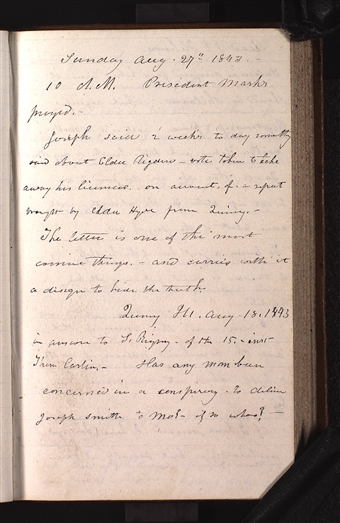 Sunday Aug. 27th 1843.
10 A.M. President Marks
prayed.-
Joseph said 2 weeks to day something
said about Elder Rigdon - vote taken to take
away his license. on account of. a report
brought by elder Hyde from Quincy.-
The letter is one of the most
comm things.- and carries with it
a design to hide the truth.
Quincy Ill. Aug 18. 1843
in answer to S. Rigdon. of the 15. inst
Thos Carlin.- Has any man been
concerned in a conspiracy to deliver
Joseph Smith to Mo.- if so who?-